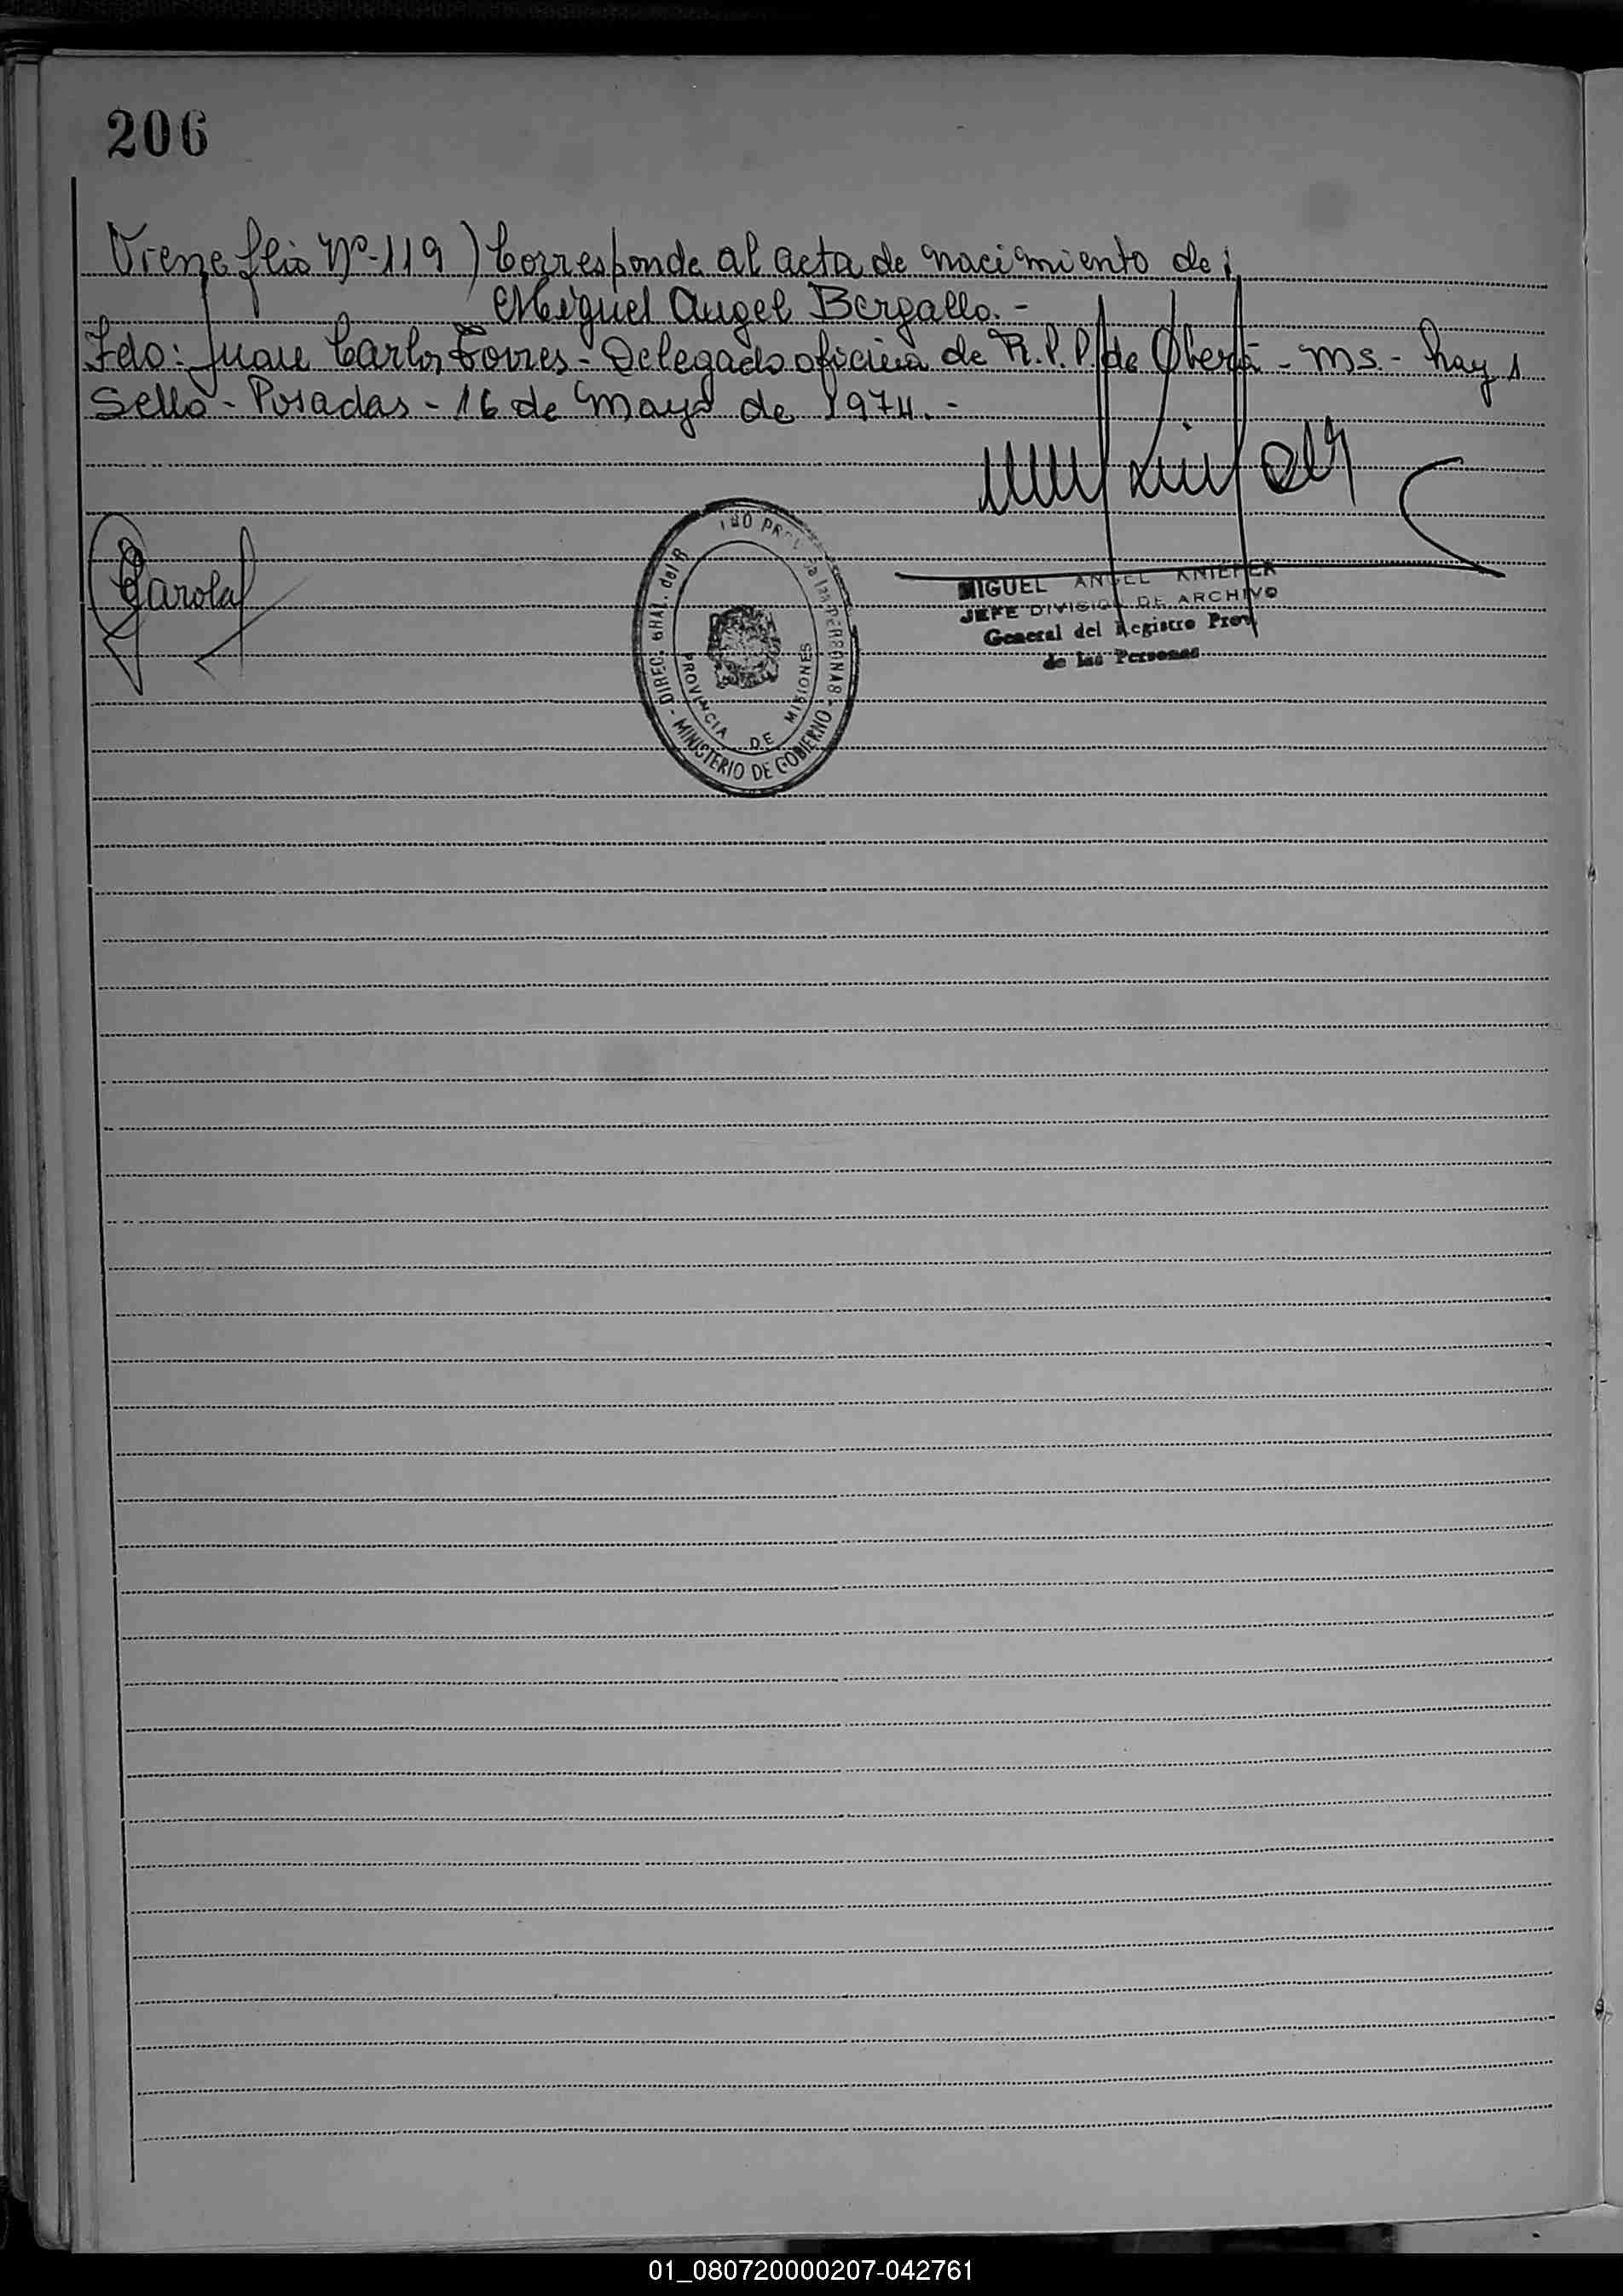 206
Viene flio Nº-119) Corresponde al acta de nacimiento de:
Miguel Angel Bergallo.-
Fdo: Juan Carlos Torres - Delegado oficina de R.P.P. de Oberá - Ms. - hay 1
Sello - Posadas - 16 de Mayo de 1974.-
Garola
DIREC. GRAL. del R
PROV. de las PERSONAS
- MINISTERIO DE GOBIERNO -
PROVINCIA DE MISIONES
MIGUEL ANGEL KNIEPER
JEFE DIVISION DE ARCHIVO
General del Registro Prov.
de las Personas
01_080720000207-042761